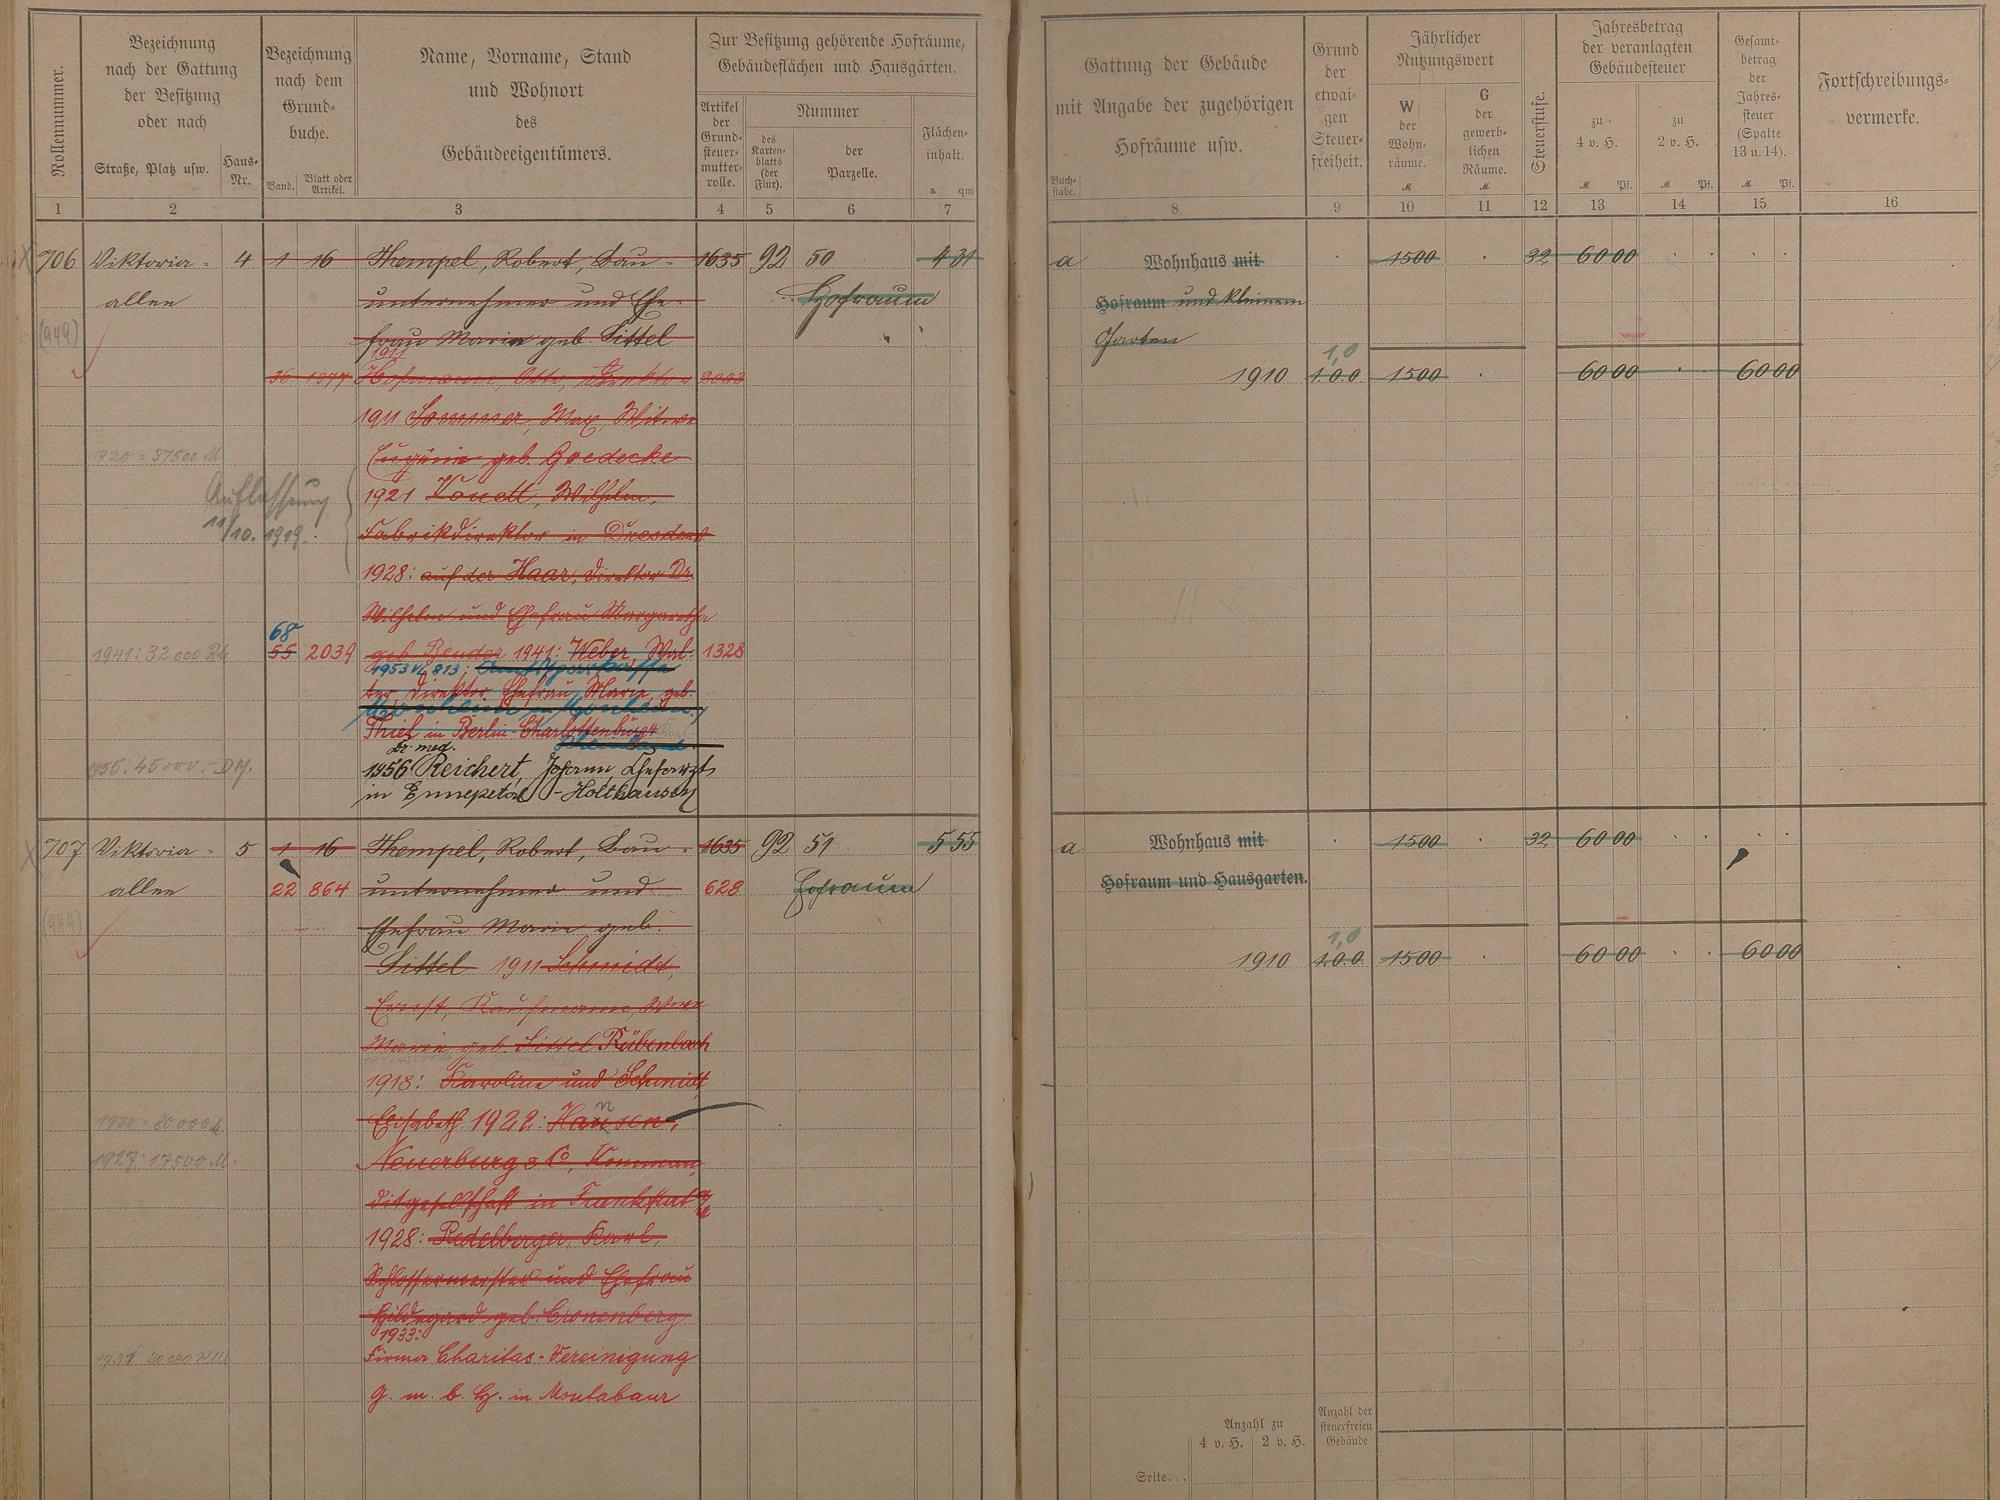 Rollennummer.
Bezeichnung
nach der Gattung
der Besitzung
oder nach
Straße, Platz usw.
Haus-
Nr.
Bezeichnung
nach dem
Grund-
buche.
Band.
Blatt oder
Artikel.
Name, Vorname, Stand
und Wohnort
des
Gebäudeeigentümers.
Zur Besitzung gehörende Hofräume,
Gebäudeflächen und Hausgärten.
Artikel
der
Grund-
steuer-
mutter-
rolle.
Nummer
des
Karten-
blatts
(der
Flur).
der
Parzelle.
Flächen-
inhalt.
a qm
1 2 3 4 5 6 7
706 Viktoria- 4 1 16 Thempel, Robert, Bau- 1635 92 50 4 31
allee unternehmer und Ehe- Hofraum
(949) frau Maria geb. Sittel
1911
36 1377 Hofmann, Otto, Direktor
1911 Sommer, Max, Witwe
Eugenie geb. Goedecke
1920 = 37500 M
Auflassung 1921 Wilhelm,
11/10. 1919. Fabrikdirektor in Dresden
1928: auf der Haar, Direktor Dr.
Wilhelm und Ehefrau Margaretha
68
1941: 32000 RM 55 2039 geb. Bender 1941: Weber, Wal- 1328
1953 VI 813: Amtssparkasse
ter, Direktor Ehefrau Marie, geb.
Monheim in Monheim
Thiel in Berlin-Charlottenburg 4
Dr. med.
1955: 45000.- DM. 1956 Reichert, Johann, Chefarzt
in Ennepetal-Holthausen
707 Viktoria- 5 1 16 Thempel, Robert, Bau- 1635 92 51 5 55
allee 22 864 unternehmer und 628 Hofraum
(949) Ehefrau Marie geb.
Sittel 1911 Schmidt,
Ernst, Kaufmann, Wwe
Marie geb. Sittel Rübenbach
1918: Karoline und Schmidt
n
Elisabeth 1922: Hausen,
1927: 17500 M. Neuerburg & Co, Komman-
ditgesellschaft in Frankfurt a/M
1928: Redelberger, Karl,
Schlossermeister und Ehefrau
Hildegard geb. Cronenberg
1933:
Firma Charitas-Vereinigung
G. m. b. H. in Montabaur
Gattung der Gebäude
mit Angabe der zugehörigen
Hofräume usw.
Buch-
stabe.
Grund
der
etwai-
gen
Steuer-
freiheit.
Jährlicher
Nutzungswert
W
der
Wohn-
räume.
M
G
der
gewerb-
lichen
Räume.
M
Steuerstufe.
Jahresbetrag
der veranlagten
Gebäudesteuer
zu
4 v. H.
M Pf.
zu
2 v. H.
M Pf.
Gesamt-
betrag
der
Jahres-
steuer
(Spalte
13 u. 14).
M Pf.
Fortschreibungs-
vermerke.
8 9 10 11 12 13 14 15 16
a Wohnhaus mit 1500 32 60 00
Hofraum und kleinem
Garten
1,0
1910 1.0.0. 1500 60 00 60 00
a Wohnhaus mit 1500 32 60 00
Hofraum und Hausgarten.
1,0
1910 1.0.0. 1500 60 00 60 00
Anzahl zu
4 v. H. 2 v. H.
Anzahl der
steuerfreien
Gebäude
Seite...